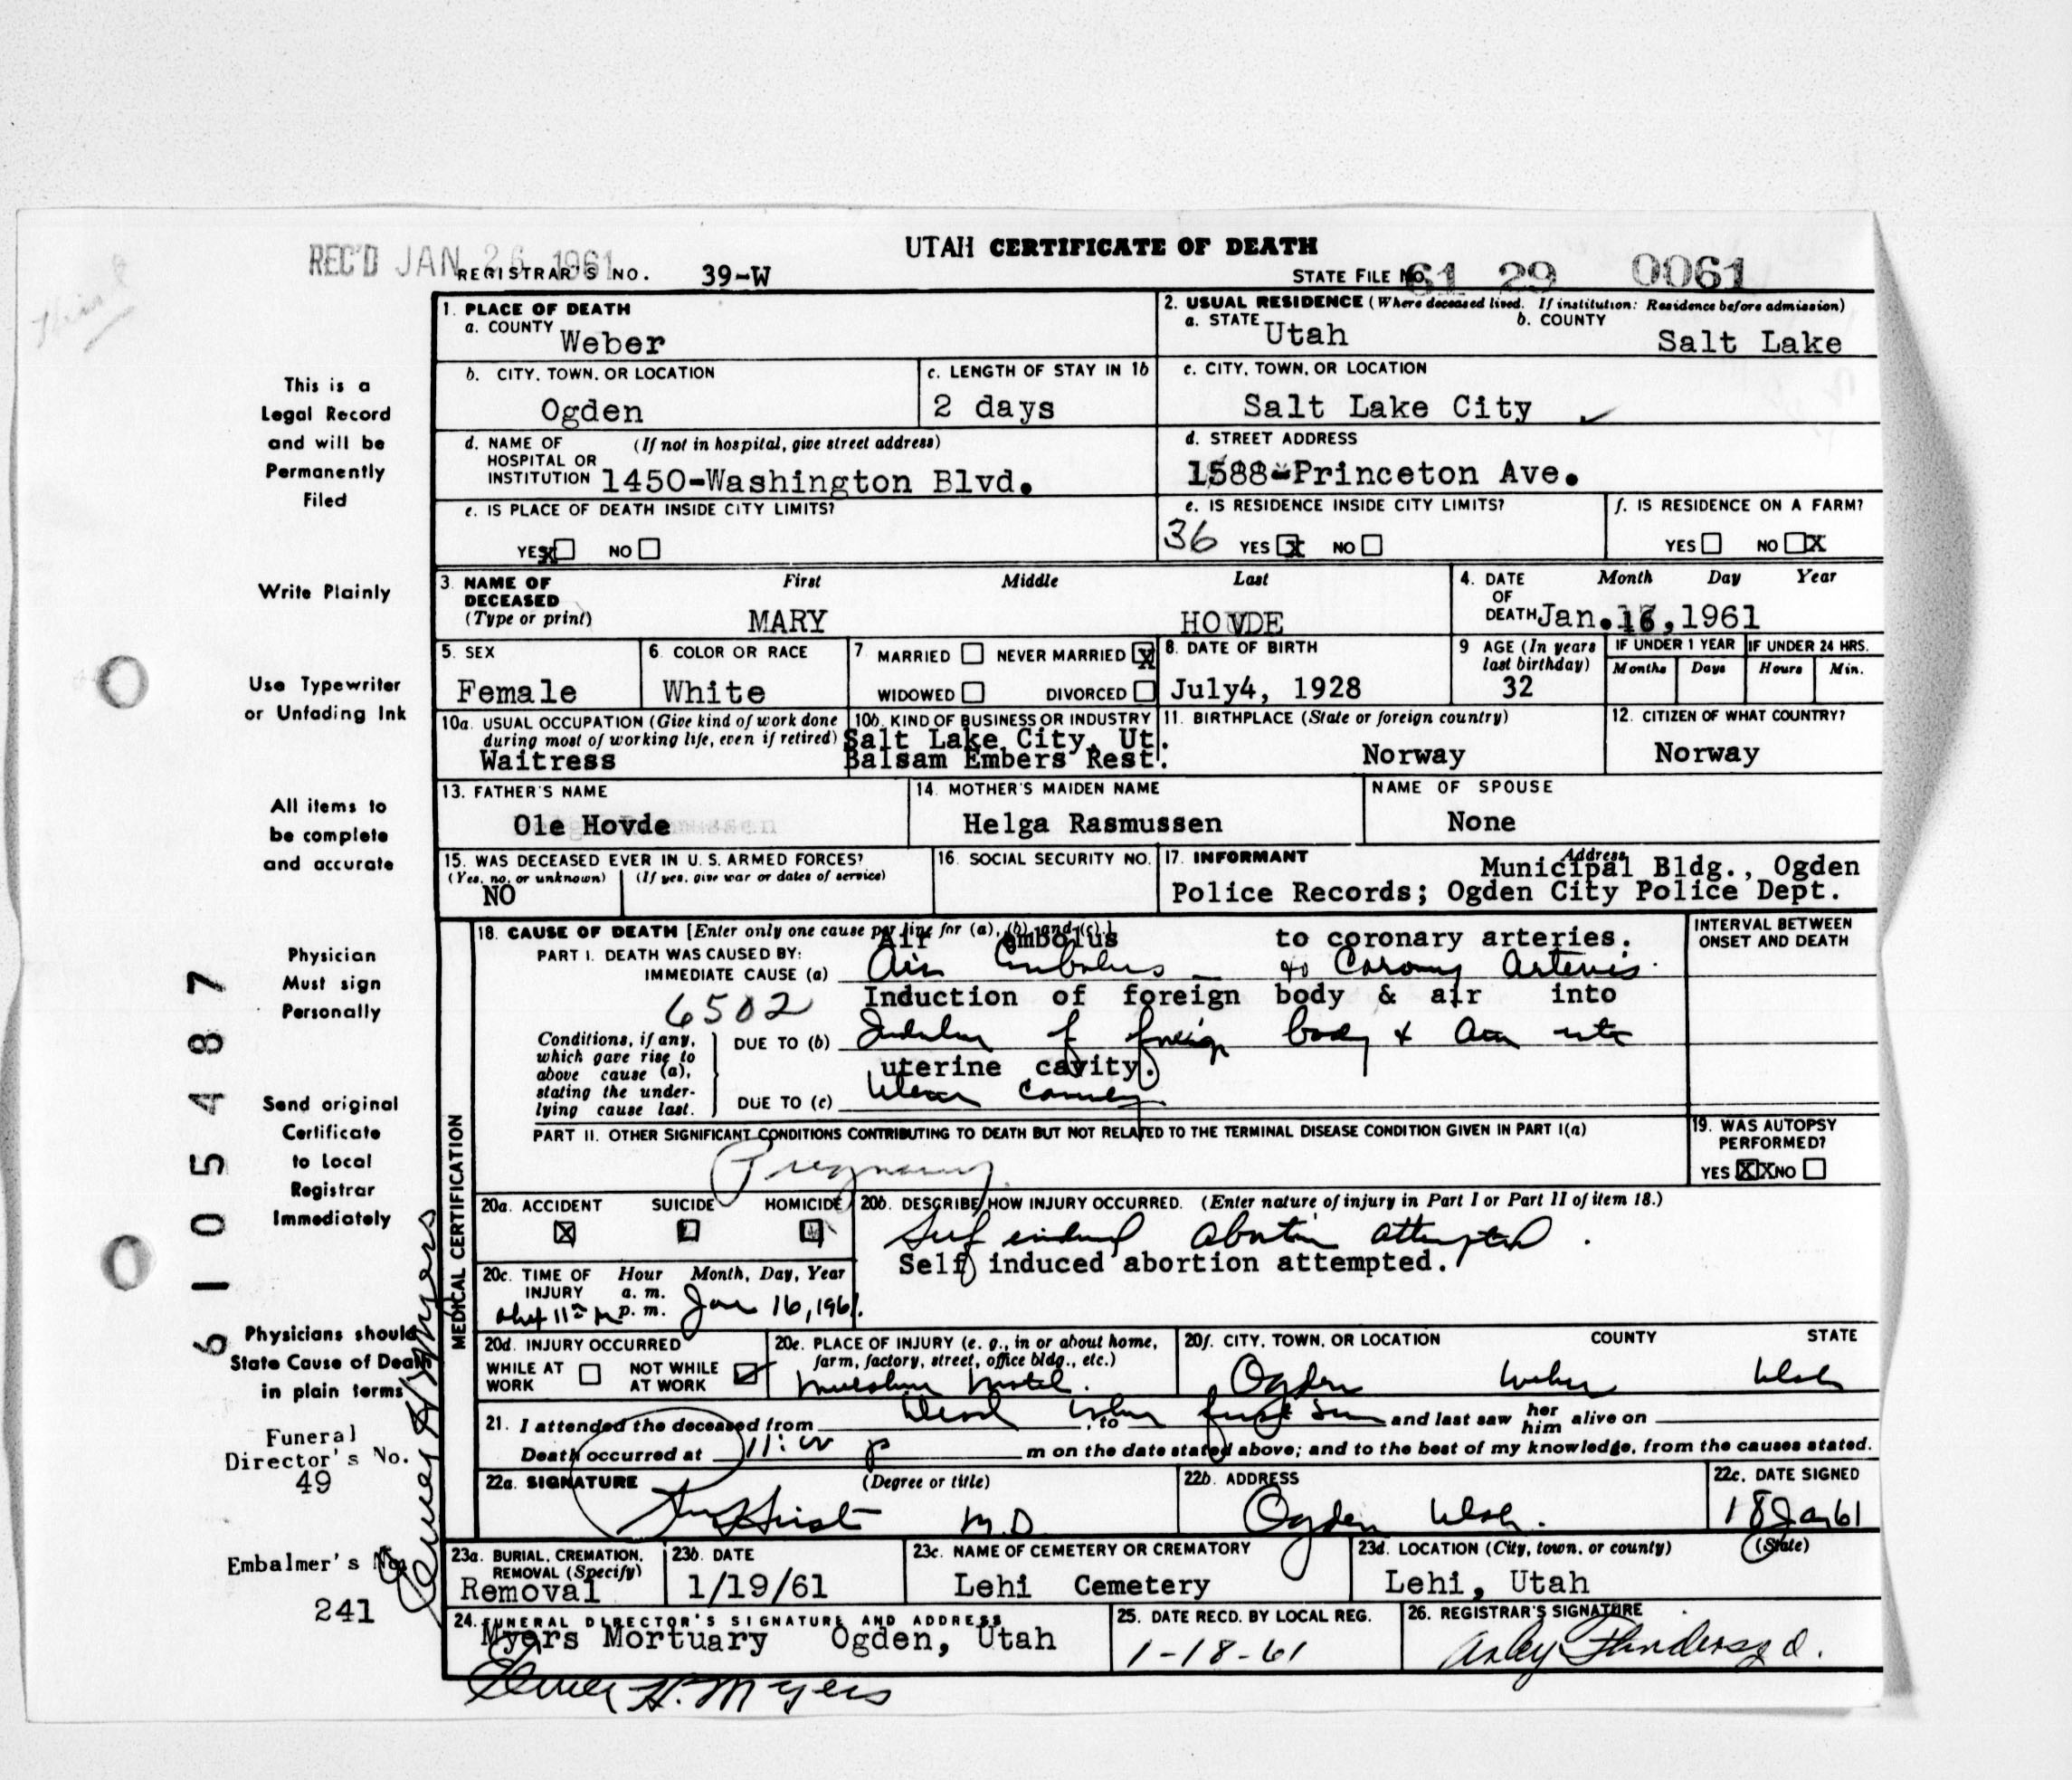 UTAH CERTIFICATE OF DEATH
REC'D JAN 26 1961
REGISTRAR'S NO. 39-W
STATE FILE NO. 61 29 0061
This is a
Legal Record
and will be
Permanently
Filed
Write Plainly
Use Typewriter
or Unfading Ink
All items to
be complete
and accurate
Physician
Must sign
Personally
Send original
Certificate
to Local
Registrar
Immediately
Physicians should
State Cause of Death
in plain terms
Funeral
Director's No.
49
Embalmer's No.
241
61 05487
Elmer H. Myers
1. PLACE OF DEATH
a. COUNTY Weber
2. USUAL RESIDENCE (Where deceased lived. If institution: Residence before admission)
a. STATE Utah b. COUNTY Salt Lake
b. CITY, TOWN, OR LOCATION
Ogden
c. LENGTH OF STAY IN 1b
2 days
c. CITY, TOWN, OR LOCATION
Salt Lake City
d. NAME OF (If not in hospital, give street address)
HOSPITAL OR
INSTITUTION 1450-Washington Blvd.
d. STREET ADDRESS
1588-Princeton Ave.
e. IS PLACE OF DEATH INSIDE CITY LIMITS?
YES X NO
e. IS RESIDENCE INSIDE CITY LIMITS?
36 YES X NO
f. IS RESIDENCE ON A FARM?
YES NO X
3. NAME OF DECEASED (Type or print)
First Middle Last
MARY HOVDE
4. DATE OF DEATH Month Day Year
Jan. 16, 1961
5. SEX
Female
6. COLOR OR RACE
White
7. MARRIED NEVER MARRIED X
WIDOWED DIVORCED
8. DATE OF BIRTH
July4, 1928
9 AGE (In years last birthday)
32
IF UNDER 1 YEAR IF UNDER 24 HRS.
Months Days Hours Min.
10a. USUAL OCCUPATION (Give kind of work done
during most of working life, even if retired)
Waitress
10b. KIND OF BUSINESS OR INDUSTRY
Salt Lake City, Ut.
Balsam Embers Rest.
11. BIRTHPLACE (State or foreign country)
Norway
12. CITIZEN OF WHAT COUNTRY?
Norway
13. FATHER'S NAME
Ole Hovde
14. MOTHER'S MAIDEN NAME
Helga Rasmussen
NAME OF SPOUSE
None
15. WAS DECEASED EVER IN U. S. ARMED FORCES?
(Yes, no, or unknown) (If yes, give war or dates of service)
NO
16. SOCIAL SECURITY NO.
17. INFORMANT Address
Municipal Bldg., Ogden
Police Records; Ogden City Police Dept.
18. CAUSE OF DEATH [Enter only one cause per line for (a), (b), and (c).]
PART I. DEATH WAS CAUSED BY:
Air embolus to coronary arteries.
IMMEDIATE CAUSE (a) Air Embolus - to Coronary Arteries.
6502
Induction of foreign body & air into
Conditions, if any,
which gave rise to
above cause (a),
stating the under-
lying cause last.
DUE TO (b) Induction of foreign body & Air into
uterine cavity.
DUE TO (c) Uterine Cavity
INTERVAL BETWEEN
ONSET AND DEATH
PART II. OTHER SIGNIFICANT CONDITIONS CONTRIBUTING TO DEATH BUT NOT RELATED TO THE TERMINAL DISEASE CONDITION GIVEN IN PART I(a)
Pregnancy
19. WAS AUTOPSY
PERFORMED?
YES XX NO
MEDICAL CERTIFICATION
20a. ACCIDENT SUICIDE HOMICIDE
X
20b. DESCRIBE HOW INJURY OCCURRED. (Enter nature of injury in Part I or Part II of item 18.)
Self induced abortion attempted.
Self induced abortion attempted.
20c. TIME OF INJURY Hour Month, Day, Year
a. m.
p. m.
Jan 16, 1961.
20d. INJURY OCCURRED
WHILE AT WORK NOT WHILE AT WORK
20e. PLACE OF INJURY (e. g., in or about home,
farm, factory, street, office bldg., etc.)
Motel.
20f. CITY, TOWN, OR LOCATION COUNTY STATE
Ogden Weber Utah
21. I attended the deceased from Dead when first seen, to and last saw her him alive on
Death occurred at 11:00 p m on the date stated above; and to the best of my knowledge, from the causes stated.
22a. SIGNATURE (Degree or title)
M.D.
22b. ADDRESS
Ogden Utah.
22c. DATE SIGNED
18 Jan 61
23a. BURIAL, CREMATION,
REMOVAL (Specify)
Removal
23b. DATE
1/19/61
23c. NAME OF CEMETERY OR CREMATORY
Lehi Cemetery
23d. LOCATION (City, town, or county) (State)
Lehi, Utah
24. FUNERAL DIRECTOR'S SIGNATURE AND ADDRESS
Myers Mortuary Ogden, Utah
Elmer H. Myers
25. DATE RECD. BY LOCAL REG.
1-18-61
26. REGISTRAR'S SIGNATURE